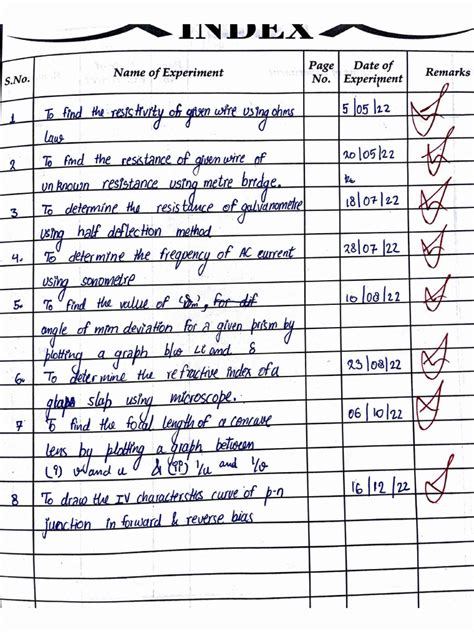 INDEX
S.No. Name of Experiment Page No. Date of Experiment Remarks
1 To find the resistivity of given wire using ohms 5/05/22
law
2 To find the resistance of given wire of 20/05/22
unknown resistance using metre bridge.
3 To determine the resistance of galvanometre 18/07/22
using half deflection method
4. To determine the frequency of AC current 28/07/22
using sonometre
5. To find the value of for dif 10/08/22
angle of mim deviation for a given prism by
plotting a graph b/w Li and δ
6. To determine the refractive index of a 23/08/22
slap using microscope.
7 To find the focal length of a concave 06/10/22
lens by plotting a graph between
(i) v and u & (ii) 1/u and 1/v
8 To draw the IV characterstes curve of p-n 16/12/22
junction in forward & reverse bias